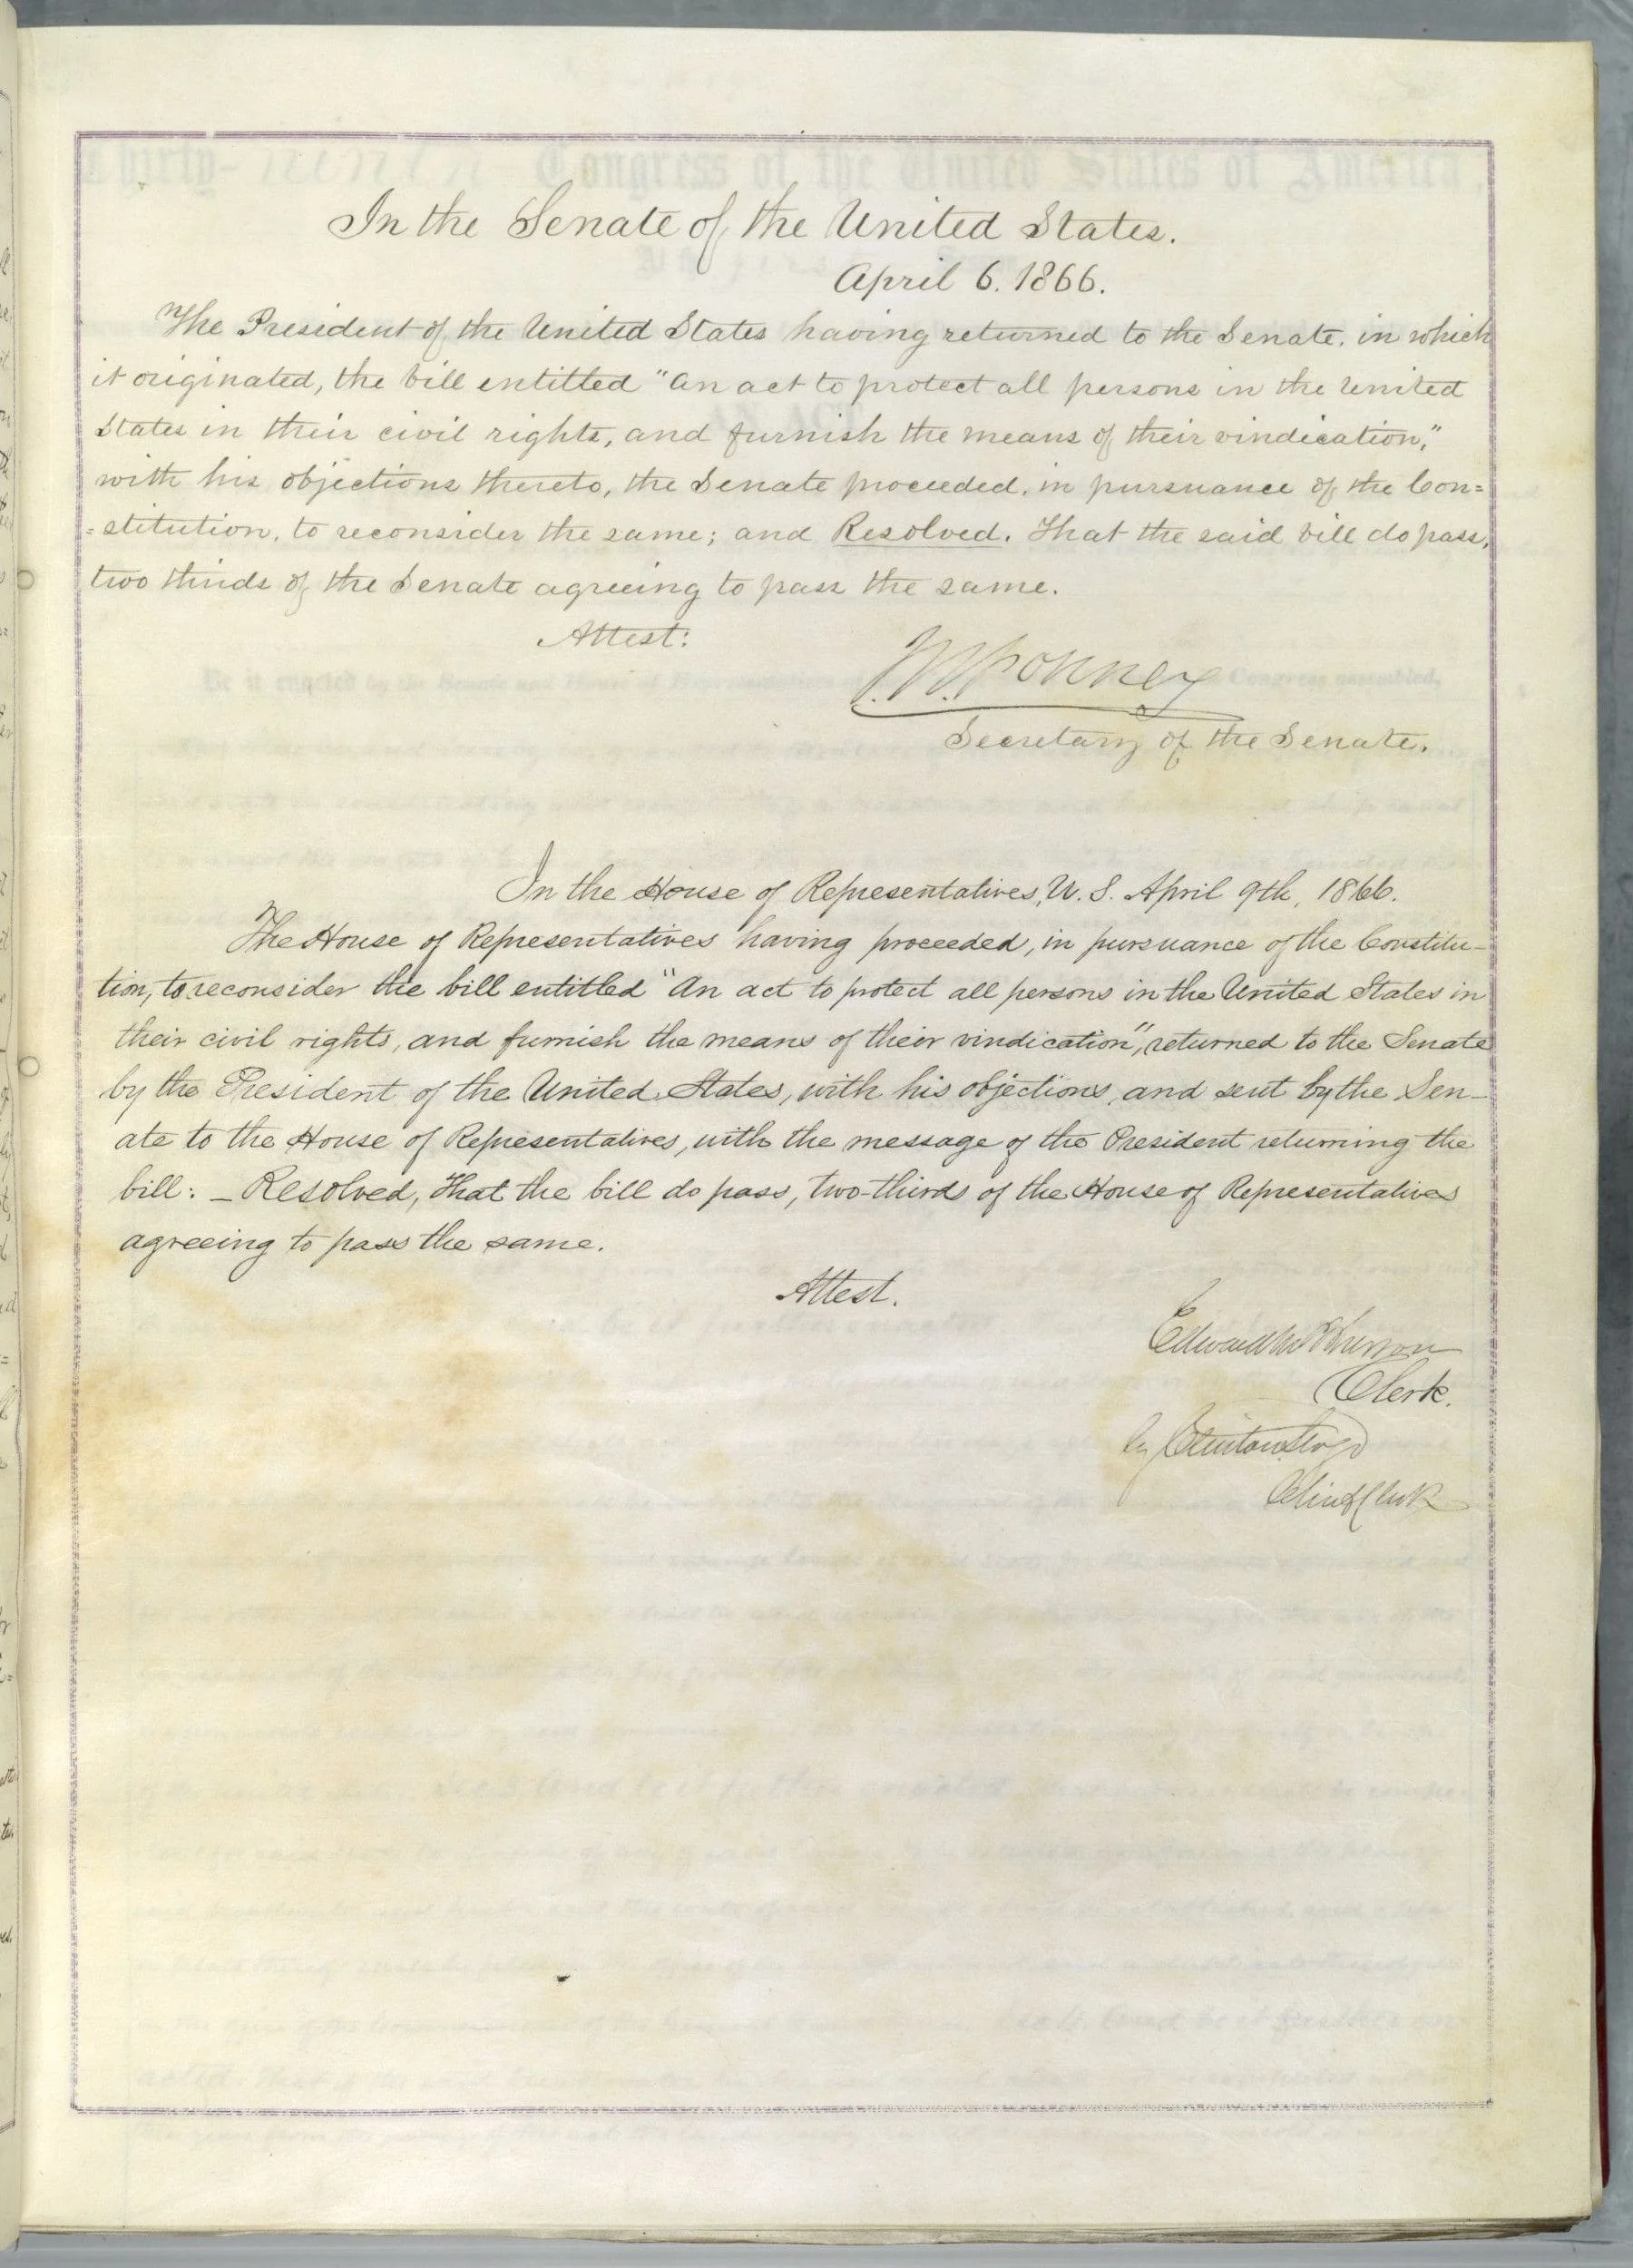 In the Senate of the United States.
April 6. 1866.
The President of the United States having returned to the Senate, in which
it originated, the bill entitled "An act to protect all persons in the United
States in their civil rights, and furnish the means of their vindication,"
with his objections thereto, the Senate proceeded, in pursuance of the Con=
=stitution, to reconsider the same; and Resolved. That the said bill do pass,
two thirds of the Senate agreeing to pass the same.
Attest:
J.W. Forney
Secretary of the Senate.
In the House of Representatives, U. S. April 9th, 1866.
The House of Representatives having proceeded, in pursuance of the Constitu-
tion, to reconsider the bill entitled "An act to protect all persons in the United States in
their civil rights, and furnish the means of their vindication", returned to the Senate
by the President of the United States, with his objections, and sent by the Sen-
ate to the House of Representatives, with the message of the President returning the
bill: - Resolved, That the bill do pass, two-thirds of the House of Representatives
agreeing to pass the same.
Attest.
Edward McPherson
Clerk.
by Clinton Lloyd
Chief Clerk